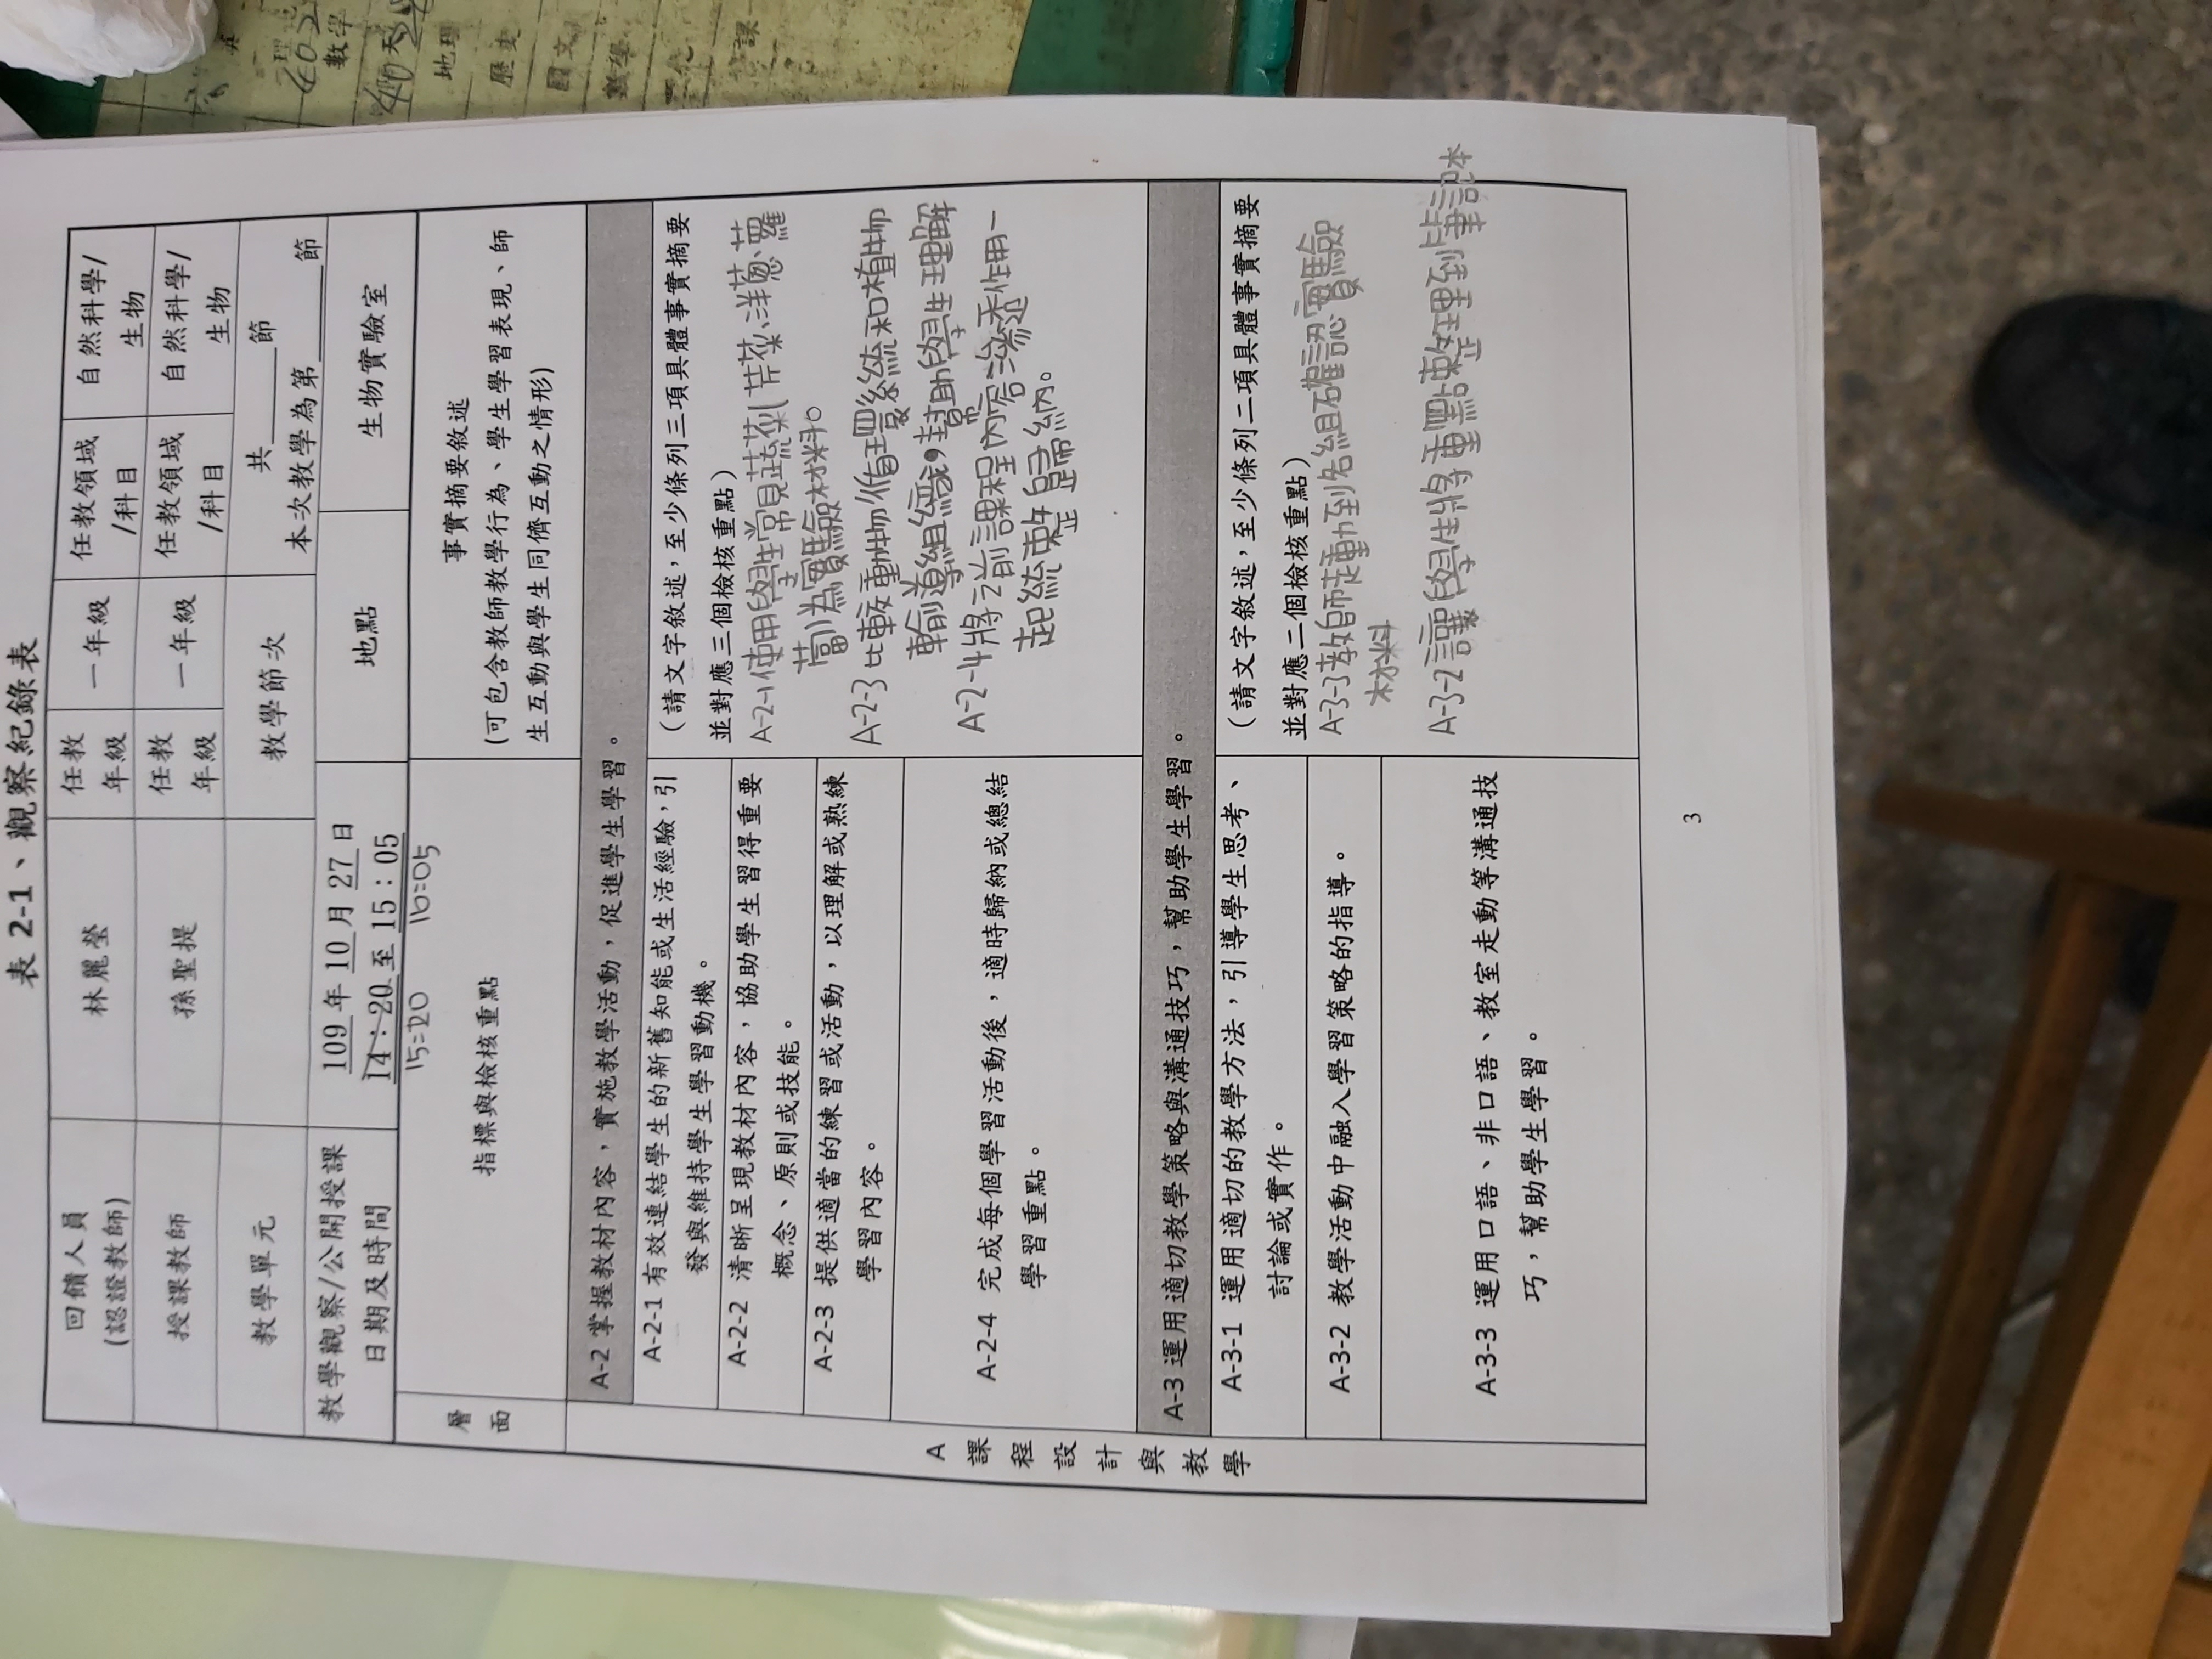 表 2-1、觀察紀錄表
回饋人員
(認證教師)
林麗瑩
任教
年級
一年級
任教領域
/科目
自然科學/
生物
授課教師
孫聖提
任教
年級
一年級
任教領域
/科目
自然科學/
生物
教學單元
教學節次
共____節
本次教學為第____節
教學觀察/公開授課
日期及時間
109 年 10 月 27 日
14:20 至 15:05
15:20 16:05
地點
生物實驗室
層
面
指標與檢核重點
事實摘要敘述
(可包含教師教學行為、學生學習表現、師
生互動與學生同儕互動之情形)
A 課程設計與教學
A-2 掌握教材內容,實施教學活動,促進學生學習。
A-2-1 有效連結學生的新舊知能或生活經驗,引
發與維持學生學習動機。
A-2-2 清晰呈現教材內容,協助學生習得重要
概念、原則或技能。
A-2-3 提供適當的練習或活動,以理解或熟練
學習內容。
A-2-4 完成每個學習活動後,適時歸納或總結
學習重點。
(請文字敘述,至少條列三項具體事實摘要
並對應三個檢核重點)
A-2-1 使用學生常見蔬菜(芹菜、洋蔥、蘿
蔔)為實驗材料。
A-2-3 比較動物循環系統和植物
輸導組織,幫助學生理解
A-2-4 將之前課程內容滲透作用一
起統整歸納。
A-3 運用適切教學策略與溝通技巧,幫助學生學習。
A-3-1 運用適切的教學方法,引導學生思考、
討論或實作。
A-3-2 教學活動中融入學習策略的指導。
A-3-3 運用口語、非口語、教室走動等溝通技
巧,幫助學生學習。
(請文字敘述,至少條列二項具體事實摘要
並對應二個檢核重點)
A-3-3 教師走動到各組確認實驗
材料
A-3-2 讓學生將重點整理到筆記本
3
數學
地理
歷史
國文
數學